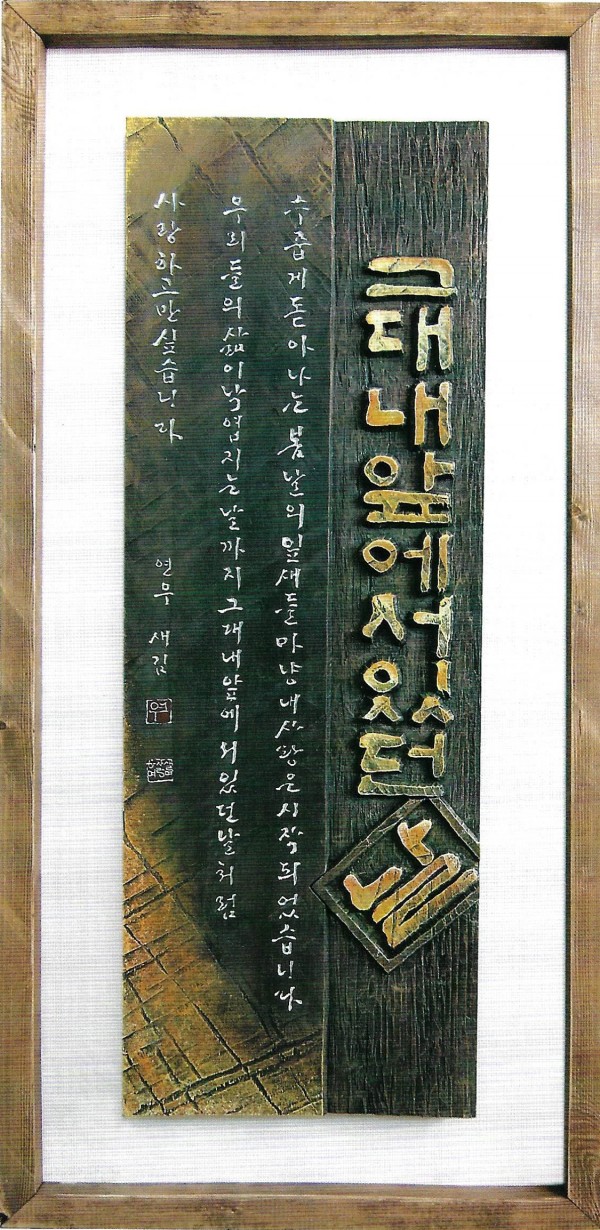 그대 내 앞에 서 있던 날
수줍게 돋아나는 봄날의 잎새들 마냥 내 사랑은 시작되었습니다
우리들의 삶이 낙엽지는 날까지 그대 내 앞에 서 있던 날처럼
사랑하고만 싶습니다
연우 새김